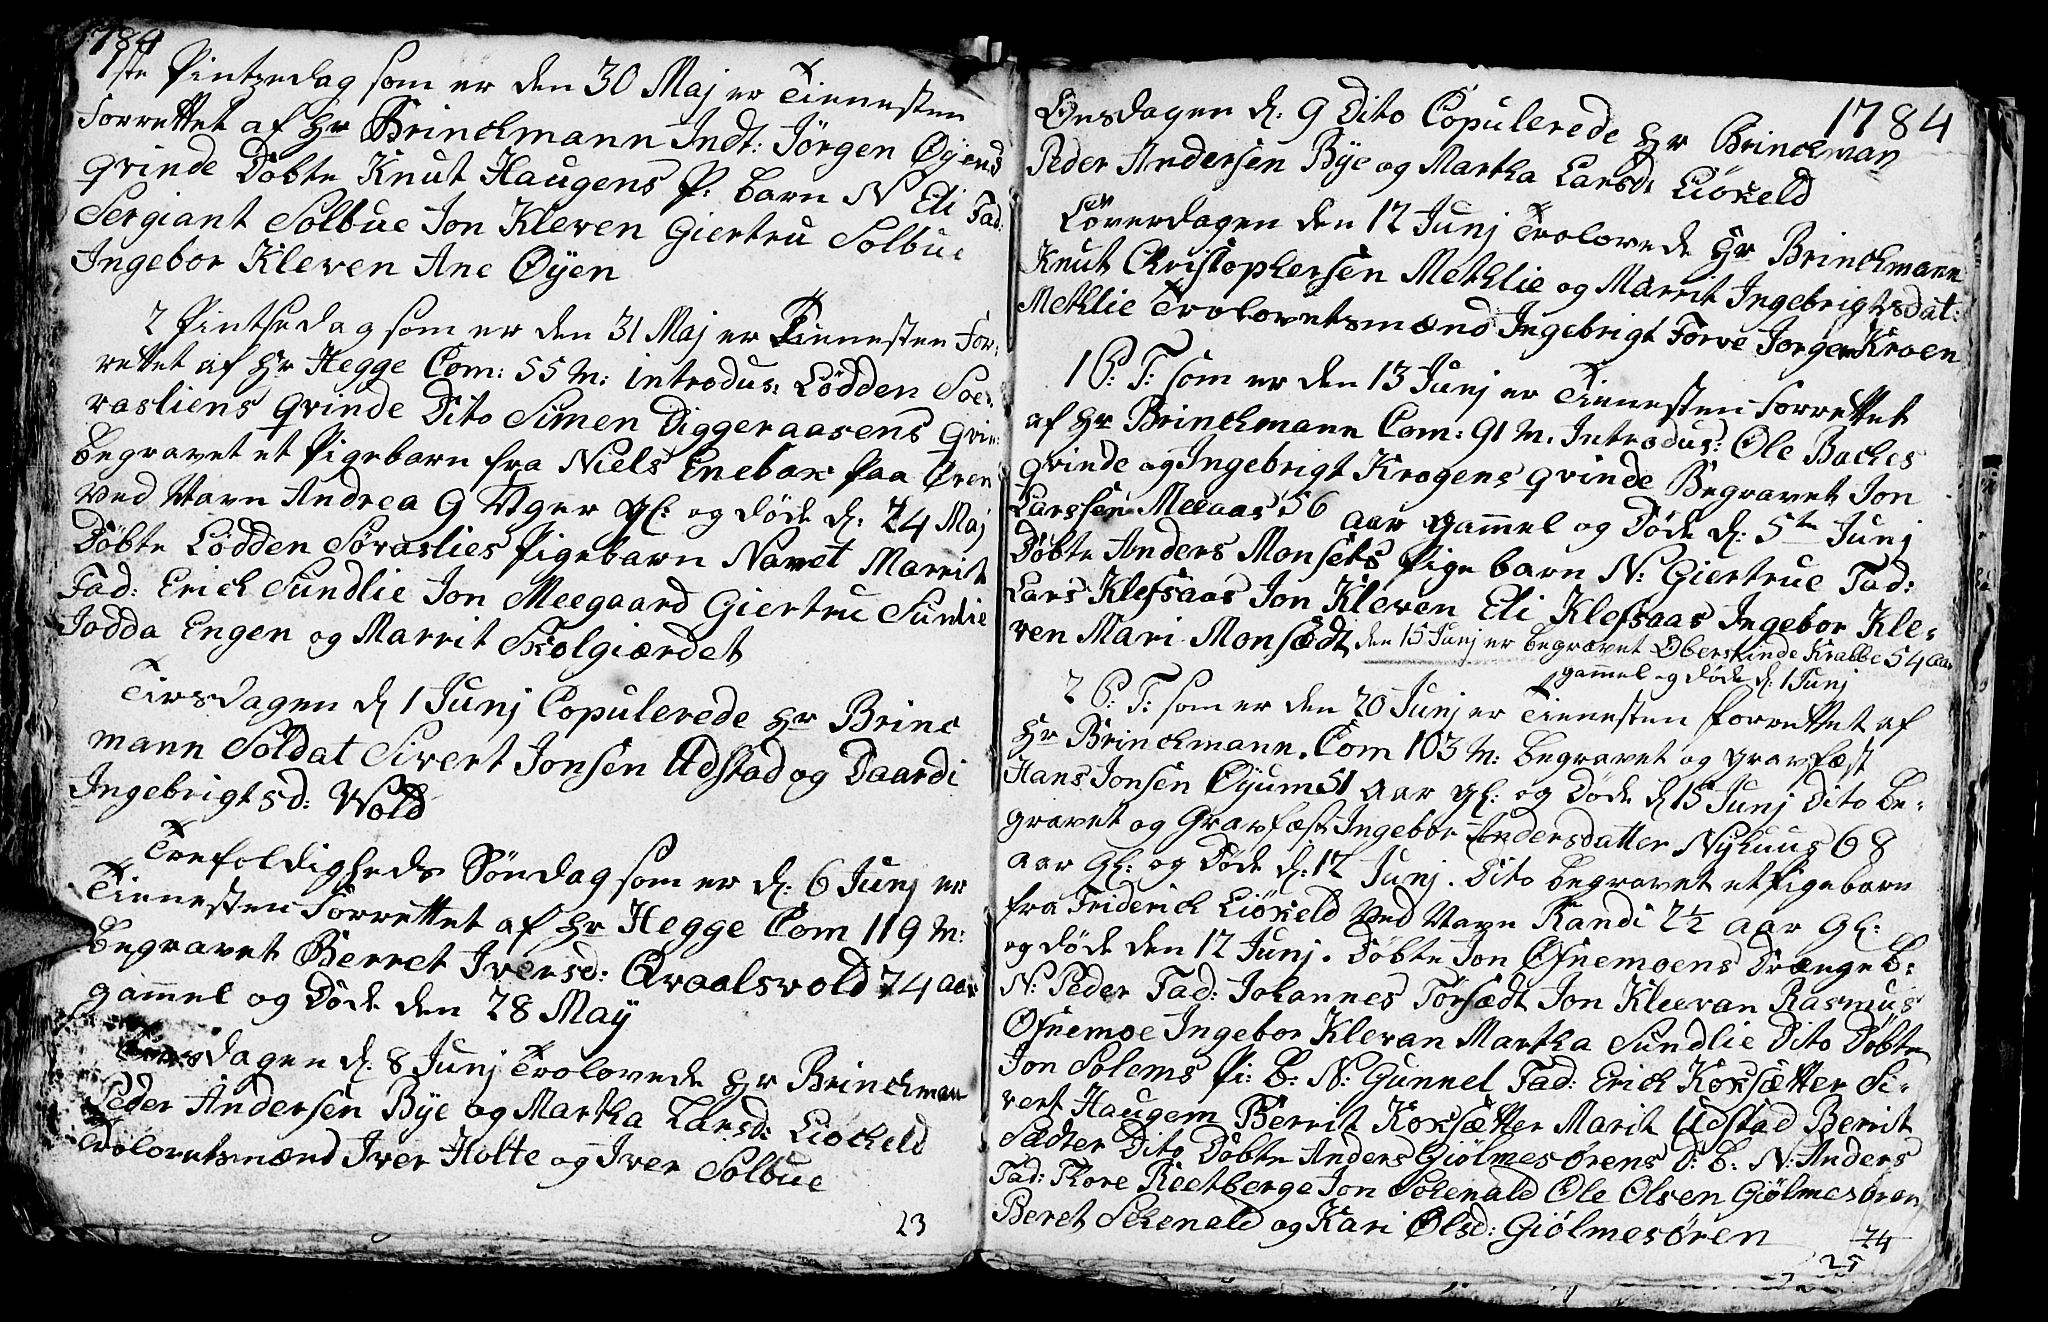 1784
1ste Pintzedag som er den 30 Maj er Tienesten
Forrettet af Hr Brinchmann Indt: Jörgen Øyens
qvinde Döbte Knut Haugens P: barn N Eli Fad:
Sergiant Solbue Jon Kleven Giertru Solbue
Ingebor Kleven Ane Øyen
2 Pintsedag som er den 31 Maj er Tienesten For:
rettet af Hr Hegge Com: 55 M: introdus: Lödden Soe:
rasliens qvinde Dito Simen Diggeraasens qvin:
begravet et Pigebarn fra Niels Enebak paa Øren
ved Navn Andrea 9 Uger gl: og döde d: 24 Maj
Döbte Lödden Söraslies Pigebarn Navet Marrit
Fad: Erich Sundlie Jon Meegaard Giertru Sundlie
Jodda Engen og Marrit Skolgiærdet
Tirsdagen d 1 Junj Copulerede Hr Brinc
mann Soldat Sivert Jonsen Udstad og Daardi
Ingebrigtsd: Wold
Trefoldigheds Söndag som er d: 6 Junj er
Tienesten Forrettet af Hr Hegge Com 119 M:
begravet Berret Iversd: Qvaalsvold 74 aar
gammel og Döde den 28 May
Tirsdagen d: 8 Junj Trolovede Hr Brinchman
Peder Andersen Bye og Martha Larsd: Liökeld
Trolovetsmænd Iver Holte og Iver Solbue
23
1784
Onsdagen d: 9 Dito Copulerede Hr Brinckman
Peder Andersen Bye og Martha Larsd: Liökeld
Löverdagen den 12 Junj Trolovede Hr Brinchmann
Knut Christophersen Methlie og Marrit Ingebrigtsdat:
Methlie Trolovetsmænd Ingebrigt Forve Jorgen Kroen
1 S: T: som er den 13 Junj er Tienesten Forrettet
af Hr Brinchmann Com: 91 M. Introdus: Ole Baches
qvinde og Ingebrigt Krogens qvinde Begravet Jon
Larssen Meeaas 56 aar gammel og Döde d: 5te Junj
Döbte Anders Monsets Pige barn N: Giertrue Fad:
Lars Klefsaas Jon Kleven Eli Klefsaas Ingebor Kle:
ven Mari Monsædt den 15 Junj er begravet Oberstinde Krabbe 54 aar
gammel og döde d: 1 Junj
2 S: T: som er den 20 Junj er Tienesten forrettet af
Hr Brinchmann. Com 103 M: begravet og gravfæst
Hans Jonsen Øyum 51 aar gl: og Döde d 15 Junj Dito be:
gravet og Gravfæst Ingebor Andersdatter Nyhuus 68
aar gl: og Döde d: 12 Junj. Dito begravet et Pigebarn
fra Friderich Liökeld ved Navn Randi 2½ aar gl:
og döde den 12 Junj. Döbte Jon Ofnemoens Drænge b:
N: Peder Fad: Johannes Törsædt Jon Klevan Rasmus
Ofnemoe Ingebor Klevan Martha Sundlie Dito Döbte
Jon Solems Pi: b: N: Gunnel Fad: Erich Koksætter Si:
vert Haugem Berrit Koksætter Marit Udstad Berrit
Sædter Dito Döbte Anders Giölmesörens D: b: N: Anders
Fad: Thore Reetberge Jon Schenald Ole Olsen Giölmesören
Beret Schenald og Kari Olsd: Giölmesören
24
25